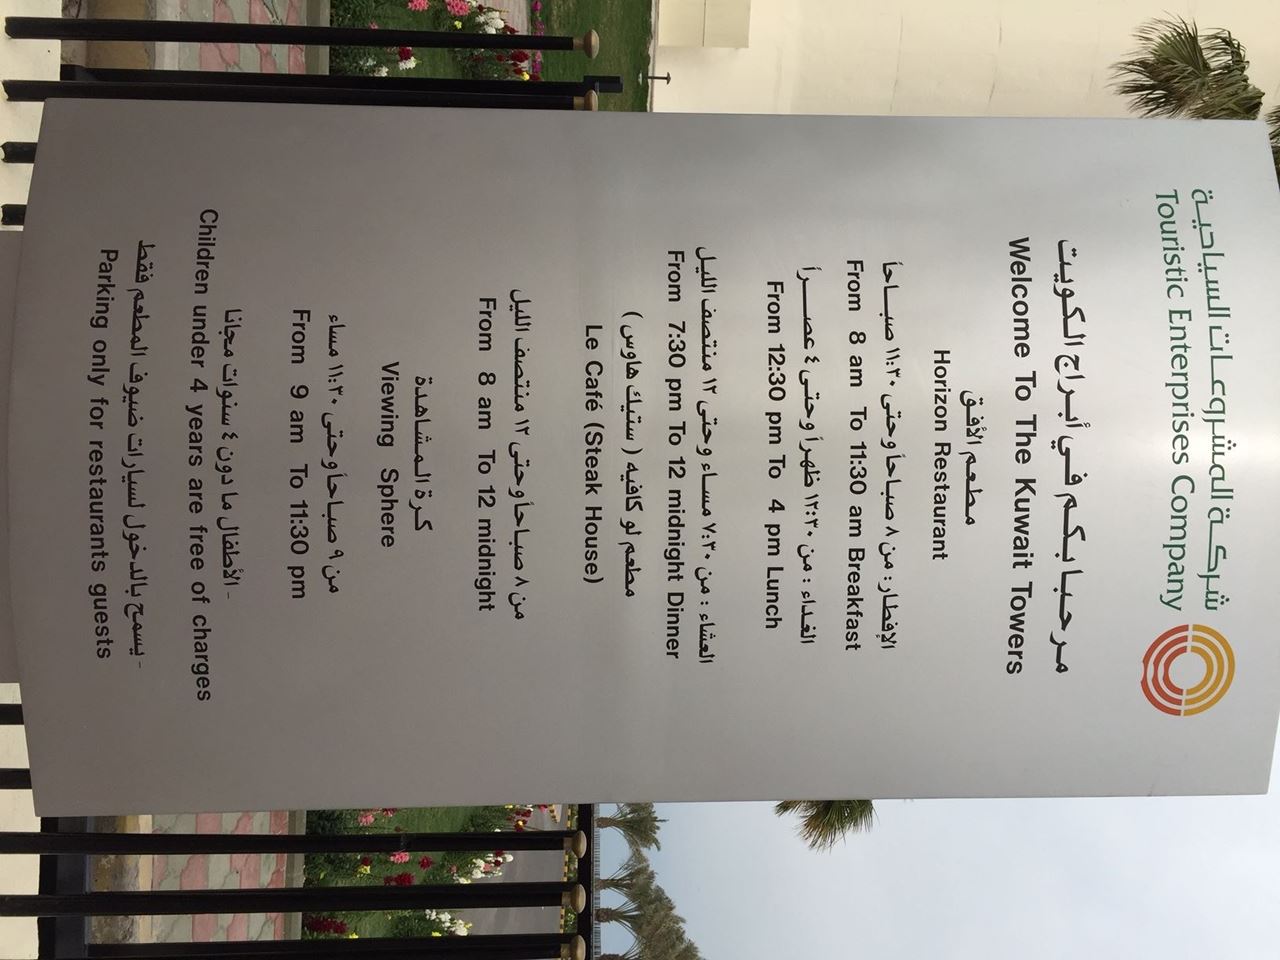 شركة المشروعات السياحية
Touristic Enterprises Company
مرحبا بكم في أبراج الكويت
Welcome To The Kuwait Towers
مطعم الأفق
Horizon Restaurant
الإفطار : من ٨ صباحاً وحتى ١١:٣٠ صباحاً
From 8 am To 11:30 am Breakfast
الغداء : من ١٢:٣٠ ظهراً وحتى ٤ عصراً
From 12:30 pm To 4 pm Lunch
العشاء : من ٧:٣٠ مساء وحتى ١٢ منتصف الليل
From 7:30 pm To 12 midnight Dinner
مطعم لو كافيه ( ستيك هاوس )
Le Café (Steak House)
من ٨ صباحاً وحتى ١٢ منتصف الليل
From 8 am To 12 midnight
كرة المشاهدة
Viewing Sphere
من ٩ صباحاً وحتى ١١:٣٠ مساء
From 9 am To 11:30 pm
- الأطفال ما دون ٤ سنوات مجانا
Children under 4 years are free of charges
- يسمح بالدخول لسيارات ضيوف المطعم فقط
Parking only for restaurants guests